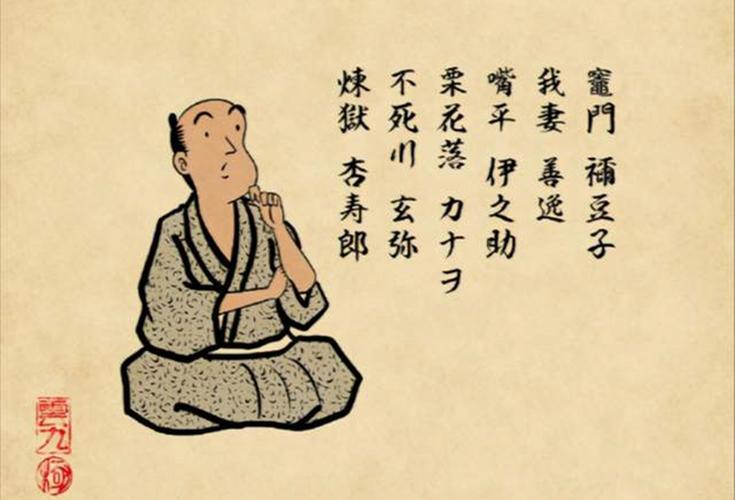 竈門 禰豆子
我妻 善逸
嘴平 伊之助
栗花落 カナヲ
不死川 玄弥
煉獄 杏寿郎